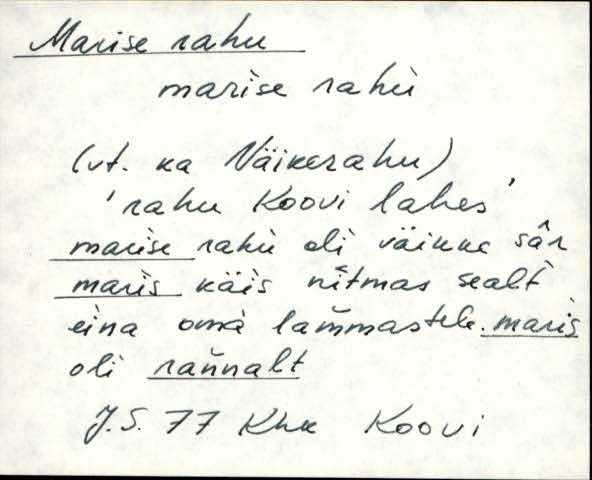 Marise rahu
marise rahu
(vt. ka Väikerahu)
'rahu Koovi lahes'
marise rahu oli väikke sâr
maris käis nītmas sealt
eina omà lam̆mastele. maris
oli ran̆nalt
J.S. 77 Khk Koovi